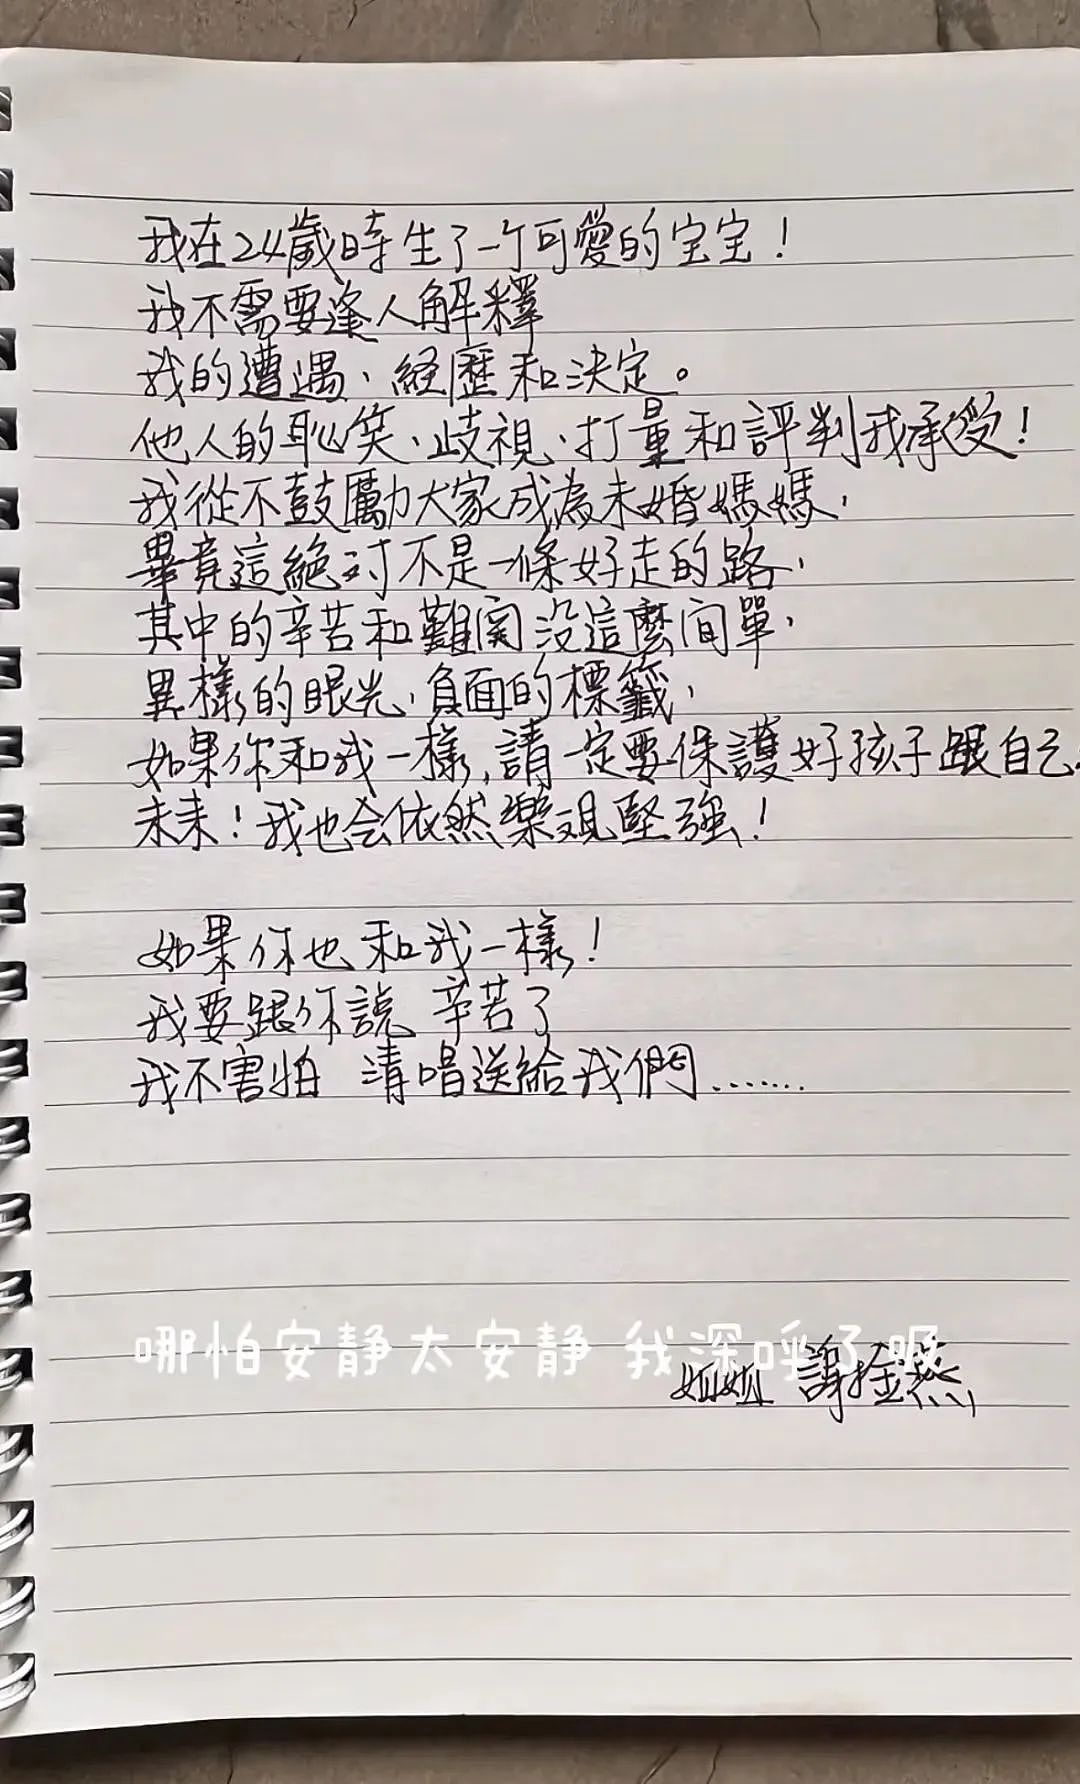 我在24歲時生了一个可愛的宝宝！
我不需要逢人解釋
我的遭遇、経歷和決定。
他人的恥笑、歧視、打量和評判我承受！
我從不鼓勵大家成為未婚媽媽，
畢竟這絕对不是一條好走的路，
其中的辛苦和難関没這麼简單，
異樣的眼光、負面的標籤，
如果你和我一樣，請一定要保護好孩子跟自己。
未来！我也会依然樂观堅強！
如果你也和我一樣！
我要跟你說 辛苦了
我不害怕 清唱送給我們.......
哪怕安静太安静 我深呼了吸
姐姐 謝金燕